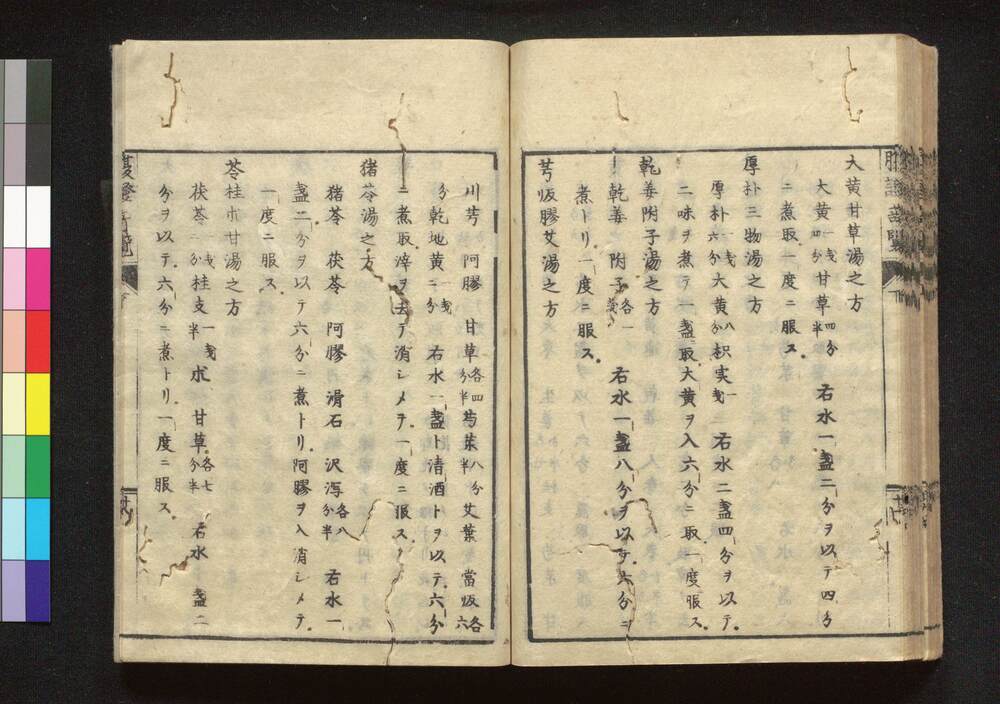 大黄甘草湯之方
大黄一戔四分甘草四分半 右水一盞二分ヲ以テ四分
ニ煮取一度ニ服ス
厚朴三物湯之方
厚朴一戔六分大黄八分枳実一戔 右水二盞四分ヲ以テ
二味ヲ煮テ一盞取大黄ヲ入六分ニ取一度服ス
乾姜附子湯之方
乾姜 附子各一戔 右水一盞八分ヲ以テ六分ニ
煮トリ一度ニ服ス
芎皈膠艾湯之方
川芎 阿膠 甘草各四分半芍薬八分半 艾葉 當皈各六
分乾地黄一戔二分 右水一盞ト清酒トヲ以テ六分
ニ煮取滓ヲ去テ消シメテ一度ニ服ス
猪苓湯之方
猪苓 茯苓 阿膠 滑石 沢瀉各八分半 右水一
盞二分ヲ以テ六分ニ煮トリ阿膠ヲ入消シメテ
一度ニ服ス
苓桂朮甘湯之方
茯苓一戔一分桂支一戔半 朮 甘草各七分半 右水一盞二
分ヲ以テ六分ニ煮トリ一度ニ服ス